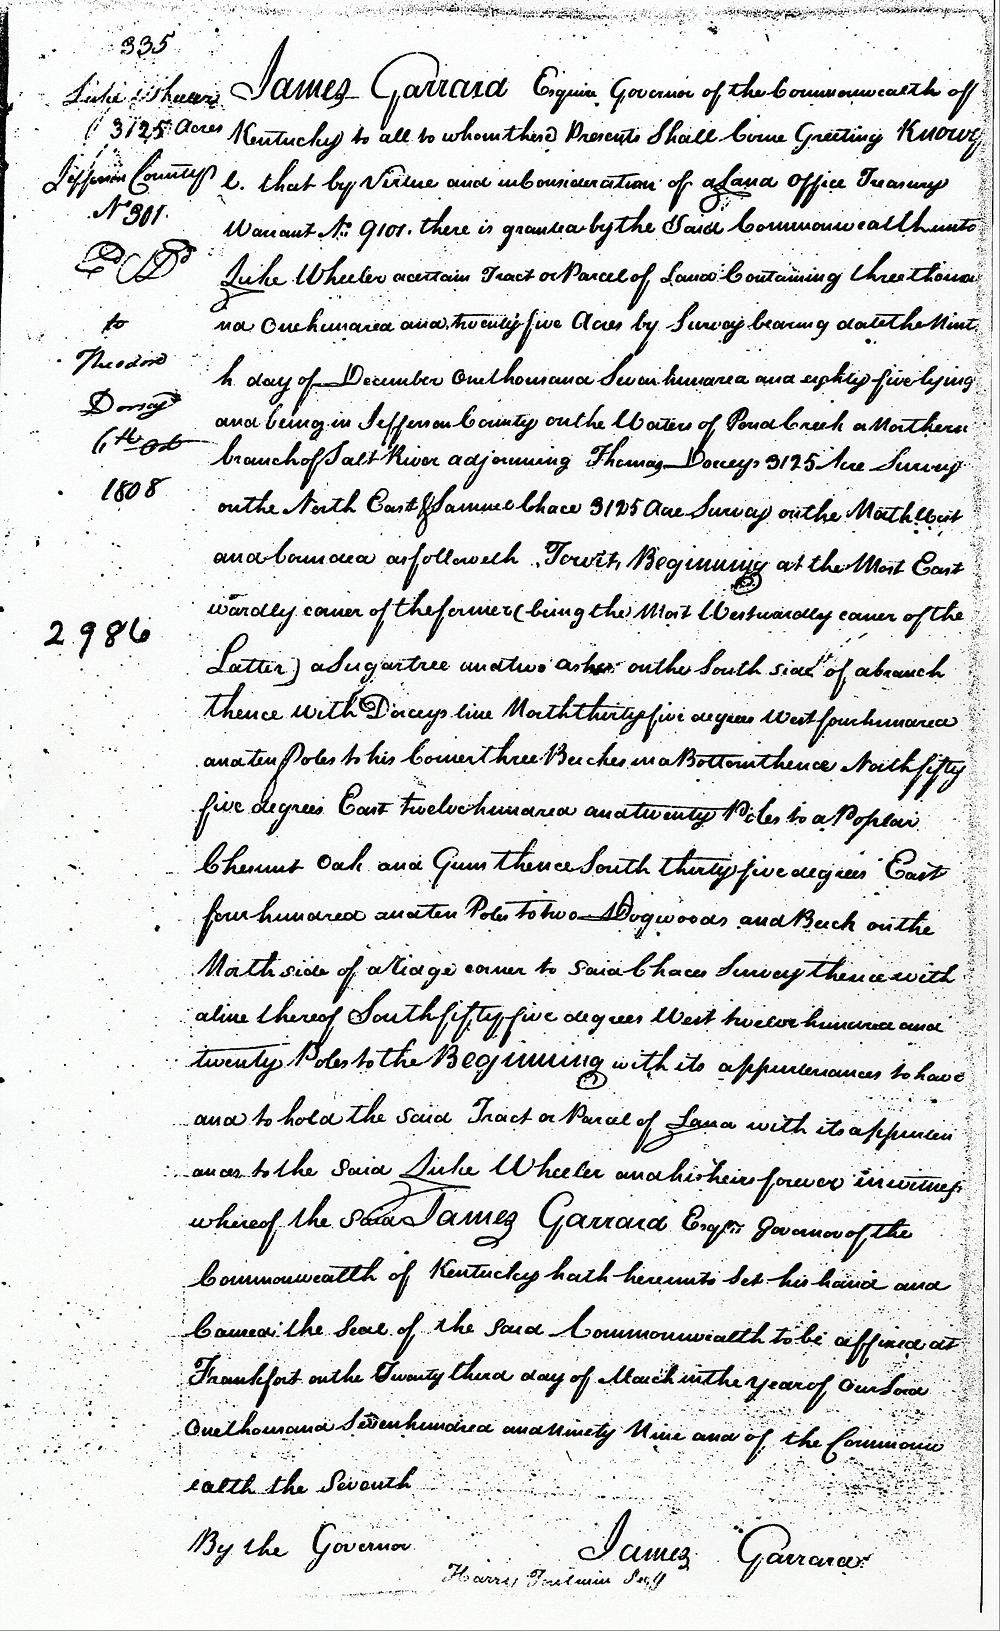 335
Luke Wheeler
3125 Acres
Jefferson County
No 301
Ed
to
Theodore
Dorsey
6th Oct
1808
2986
James Garrard Esquire Governor of the Commonwealth off
Kentucky to all to whom these Presents Shall Come Greeting Know y
e. that by Virtue and in Consideration of a Land Office Treasury
Warrant No. 9101. there is granted by the Said Commonwealth unto
Luke Wheeler a certain Tract or Parcel of Land Containing three thousa
nd One hundred and twenty five Acres by Survey bearing date the Nint
h day of December One thousand Seven hundred and eighty five lying
and being in Jefferson County on the Waters of Pond Creek a Northern
branch of Salt River adjoinning Thomas Dorseys 3125 Acre Survey
on the North East & Samuel Chace 3125 Acre Survey on the North West
and bounded as followeth Towit, Beginning at the Most East
wardly corner of the former (being the Most Westwardly corner of the
Latter) a Sugartree and two ashes on the South side of a branch
thence with Dorceys line North thirty five degrees West four hundred
and ten Poles to his Corner three Beeches in a Bottom thence North fifty
five degrees East twelve hundred and twenty Poles to a Poplar
Chesnut Oak and Gum thence South thirty five degrees East
four hundred and ten Poles to two Dogwoods and Beech on the
North side of a Ridge corner to said Chaces Survey thence with
a line thereof South fifty five degrees West twelve hundred and
twenty Poles to the Beginning with its appurtenances to have
and to hold the said Tract or Parcel of Land with its appurten
ances to the said Luke Wheeler and his heirs forever in witness
whereof the said James Garrard Esqr. Governor of the
Commonwealth of Kentucky hath hereunto Set his hand and
Caused the Seal of the said Commonwealth to be affixed at
Frankfort on the Twenty third day of March in the year of Our Lord
One thousand Seven hundred and Ninety Nine and of the Commonw
ealth the Seventh
By the Governor
James Garrard
Harry Toulmin Secy